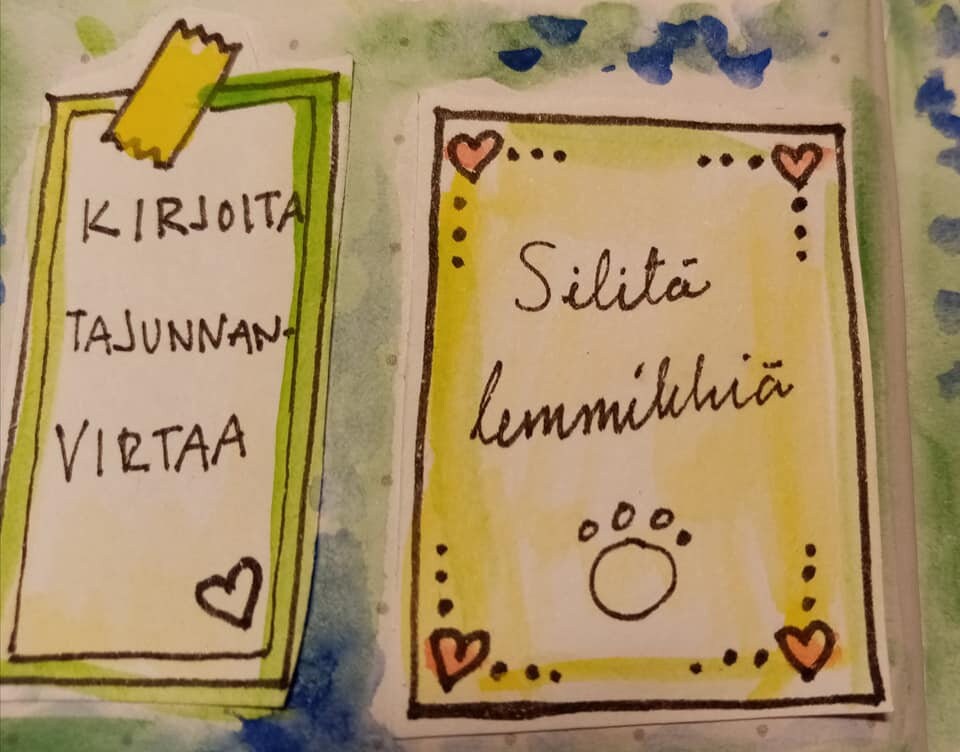 KIRJOITA
TAJUNNAN-
VIRTAA
Silitä
lemmikkiä